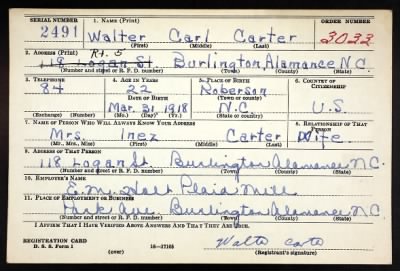 SERIAL NUMBER 1. NAME (Print) ORDER NUMBER
2491 Walter Carl Carter 3033
(First) (Middle) (Last)
2. ADDRESS (Print) Rt. 5
118 Logan St. Burlington, Alamance N.C.
(Number and street or R. F. D. number) (Town) (County) (State)
3. TELEPHONE 4. AGE IN YEARS 5. PLACE OF BIRTH 6. COUNTRY OF CITIZENSHIP
84 22 Roberson
DATE OF BIRTH (Town or county)
Mar. 31, 1918 N.C. U.S.
(Exchange) (Number) (Mo.) (Day) (Yr.) (State or country)
7. NAME OF PERSON WHO WILL ALWAYS KNOW YOUR ADDRESS 8. RELATIONSHIP OF THAT PERSON
Mrs. Inez Carter Wife
(Mr., Mrs., Miss) (First) (Middle) (Last)
9. ADDRESS OF THAT PERSON
118 Logan St. Burlington, Alamance N.C.
(Number and street or R. F. D. number) (Town) (County) (State)
10. EMPLOYER'S NAME
E.M. Holt Plaid Mill
11. PLACE OF EMPLOYMENT OR BUSINESS
Park Ave. Burlington, Alamance N.C.
(Number and street or R. F. D. number) (Town) (County) (State)
I AFFIRM THAT I HAVE VERIFIED ABOVE ANSWERS AND THAT THEY ARE TRUE.
REGISTRATION CARD
D. S. S. Form 1 (over) 16—17105 Walter Carter
(Registrant's signature)